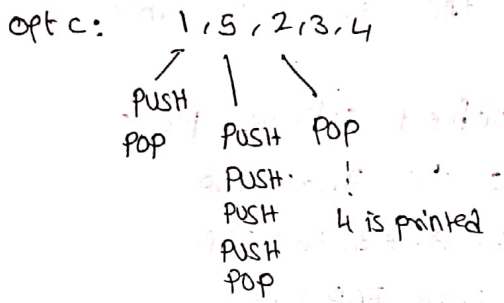 Opt C: 1, 5, 2, 3, 4
PUSH
POP
PUSH
PUSH
PUSH
PUSH
POP
POP
4 is printed